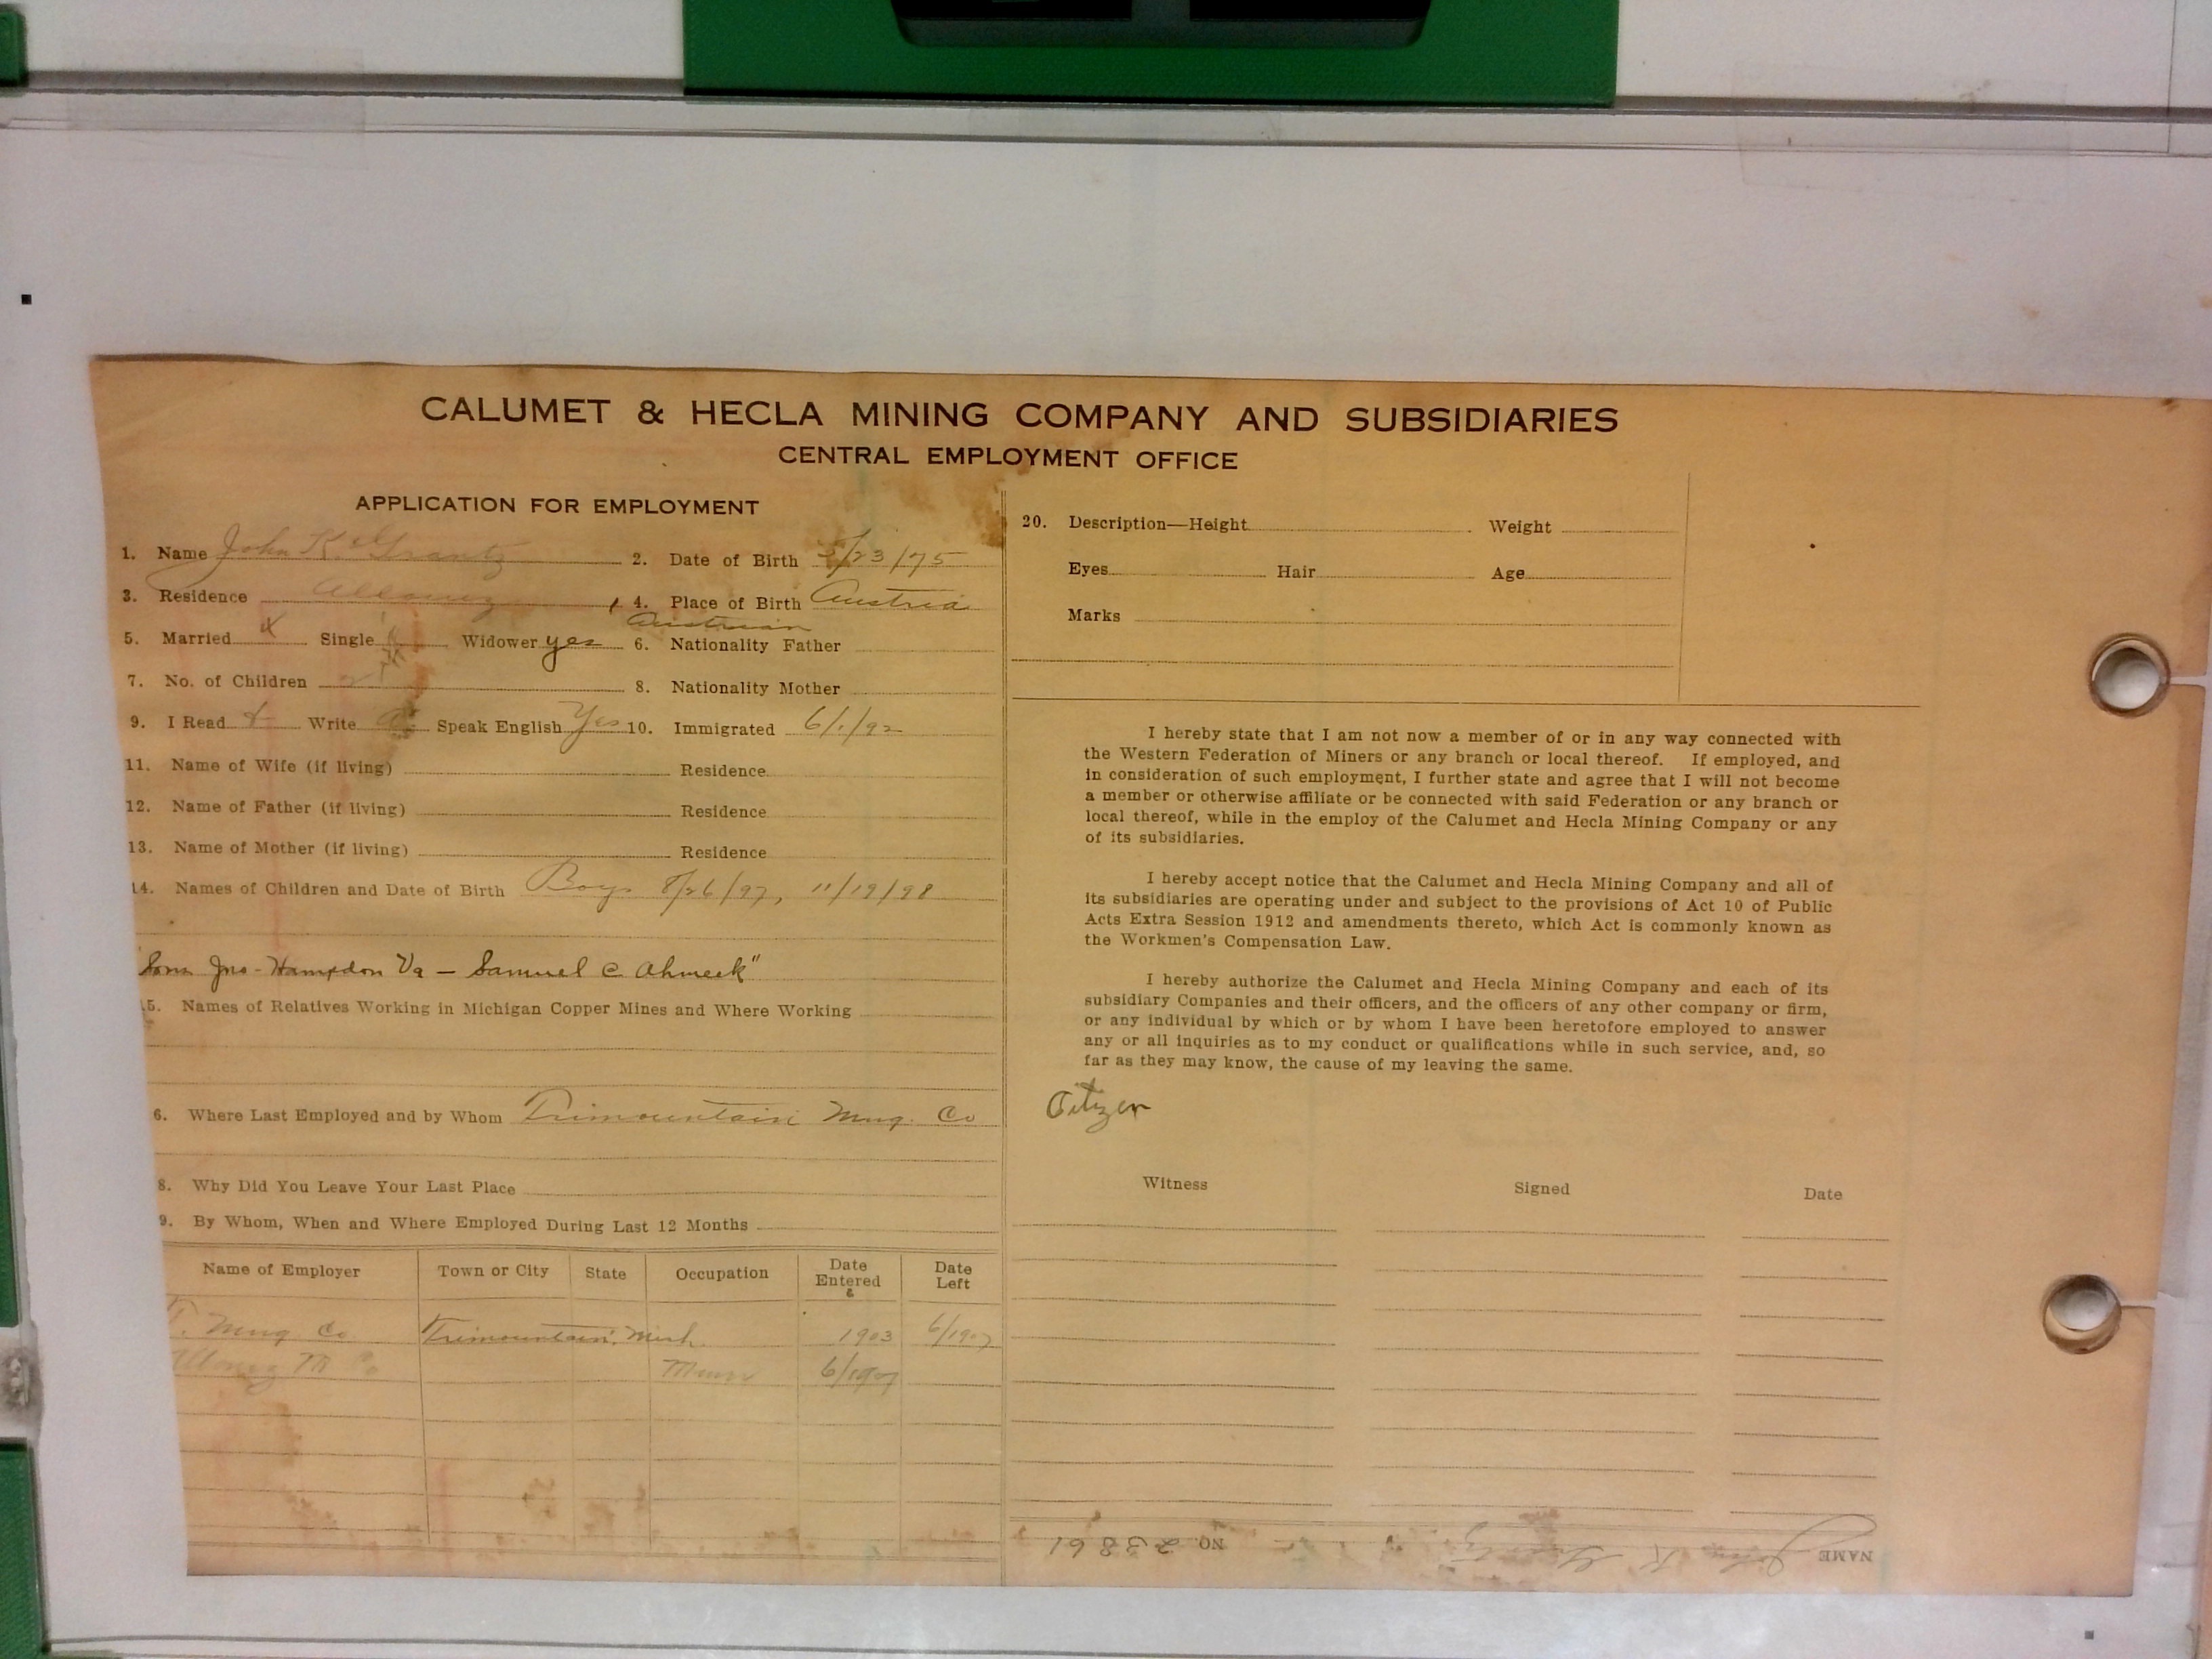 CALUMET & HECLA MINING COMPANY AND SUBSIDIARIES
CENTRAL EMPLOYMENT OFFICE
APPLICATION FOR EMPLOYMENT
1. Name John K. Grantz 2. Date of Birth /23/75
3. Residence Allouez 4. Place of Birth Austria
Austrian
5. Married X Single Widower yes 6. Nationality Father
7. No. of Children 2 8. Nationality Mother
9. I Read Write Speak English Yes 10. Immigrated 6/1/92
11. Name of Wife (if living) Residence
12. Name of Father (if living) Residence
13. Name of Mother (if living) Residence
14. Names of Children and Date of Birth Boys 8/26/97, 11/19/98
Sons Jno - Hampdon Va - Samuel C Ahmeek"
15. Names of Relatives Working in Michigan Copper Mines and Where Working
6. Where Last Employed and by Whom Trimountain Mng. Co
8. Why Did You Leave Your Last Place
9. By Whom, When and Where Employed During Last 12 Months
Name of Employer Town or City State Occupation Date Entered Date Left
T. Mng Co Trimountain, Mich. 1903 6/1907
Allouez M Co 6/1907
20. Description—Height Weight
Eyes Hair Age
Marks
I hereby state that I am not now a member of or in any way connected with
the Western Federation of Miners or any branch or local thereof. If employed, and
in consideration of such employment, I further state and agree that I will not become
a member or otherwise affiliate or be connected with said Federation or any branch or
local thereof, while in the employ of the Calumet and Hecla Mining Company or any
of its subsidiaries.
I hereby accept notice that the Calumet and Hecla Mining Company and all of
its subsidiaries are operating under and subject to the provisions of Act 10 of Public
Acts Extra Session 1912 and amendments thereto, which Act is commonly known as
the Workmen's Compensation Law.
I hereby authorize the Calumet and Hecla Mining Company and each of its
subsidiary Companies and their officers, and the officers of any other company or firm,
or any individual by which or by whom I have been heretofore employed to answer
any or all inquiries as to my conduct or qualifications while in such service, and, so
far as they may know, the cause of my leaving the same.
Citizen
Witness Signed Date
NAME John K Grantz NO. 23861